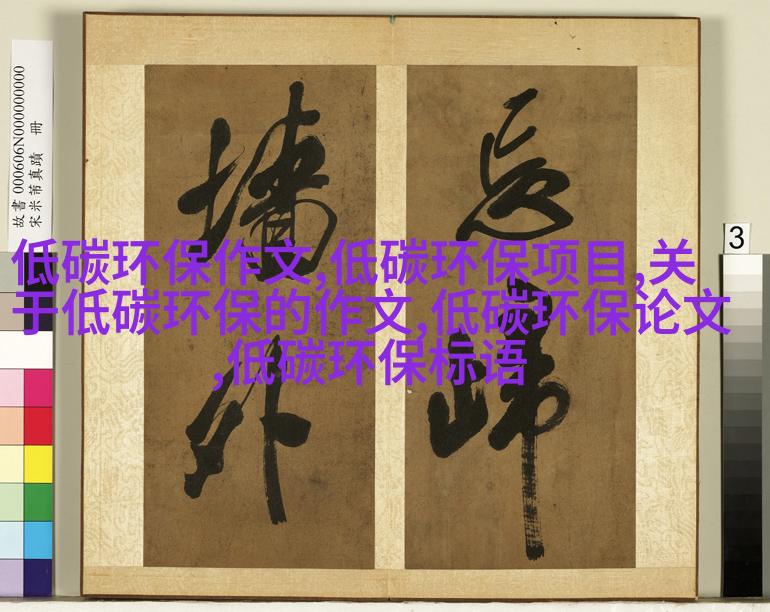 低碳环保作文,低碳环保项目,关
于低碳环保的作文,低碳环保论文
,低碳环保标语
忘歸
墙外
故書 000606N000000000
宋米芾真蹟 冊
3